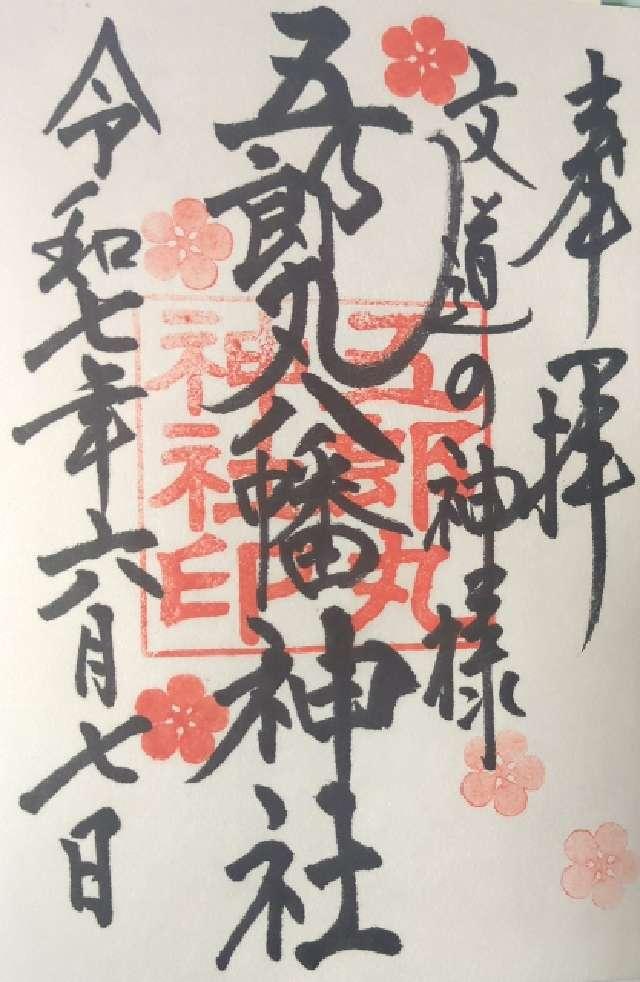 奉拝
文道の神様
五郎丸八幡神社
五郎丸
神社印
令和七年六月七日